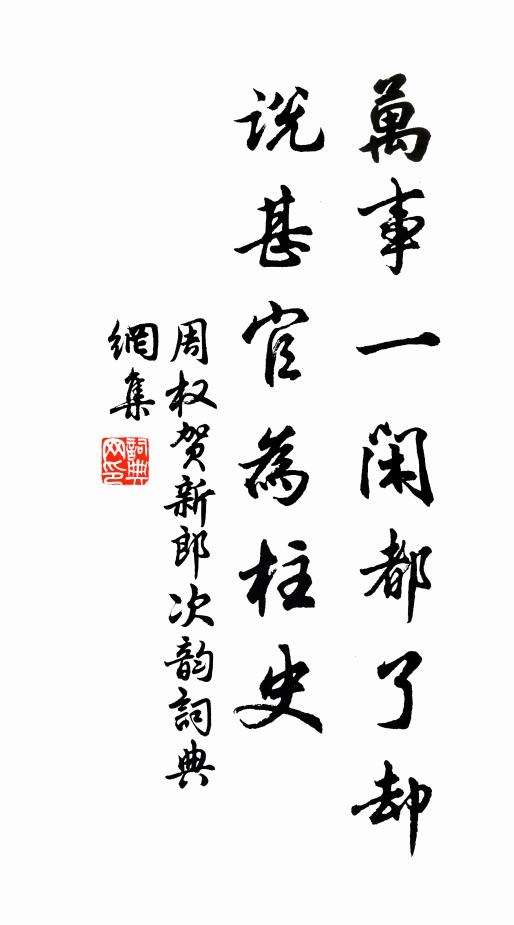 萬事一閑都了却
説甚官為柱史
周权贺新郎次韵詞典
網集
詞典網印